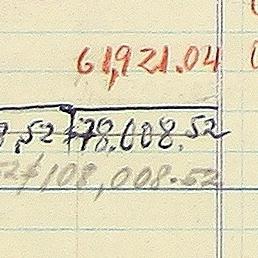 61,921.04
,52 $78,008.52
52 $108,008.52